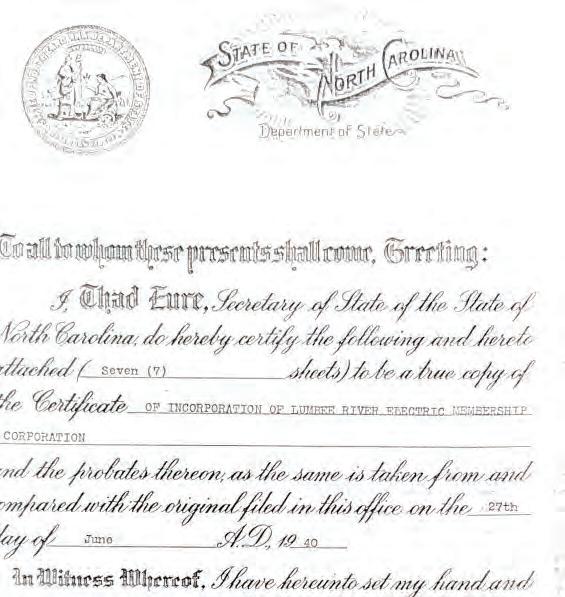 STATE OF
NORTH CAROLINA
Department of State
To all to whom these presents shall come, Greeting:
I, Thad Eure, Secretary of State of the State of
North Carolina, do hereby certify the following and hereto
attached ( Seven (7) sheets) to be a true copy of
the Certificate OF INCORPORATION OF LUMBEE RIVER ELECTRIC MEMBERSHIP
CORPORATION
and the probates thereon, as the same is taken from and
compared with the original filed in this office on the 27th
day of June A.D., 19 40
In Witness Whereof, I have hereunto set my hand and